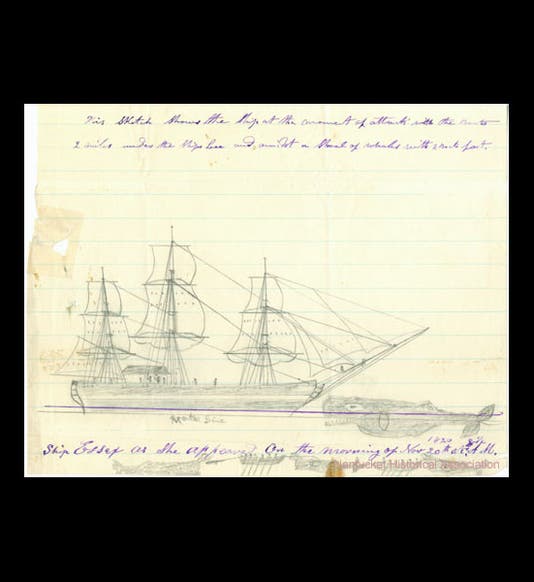 This Sketch Shows the Ship at the moment of attack with the boats
2 miles under the Ships Lee and, amidst a Shoal of whales with 2 boats fast.
Water Line
Ship Essex as She appeared On the morning of Nov 20th 1820 A.M.
Nantucket Historical Association